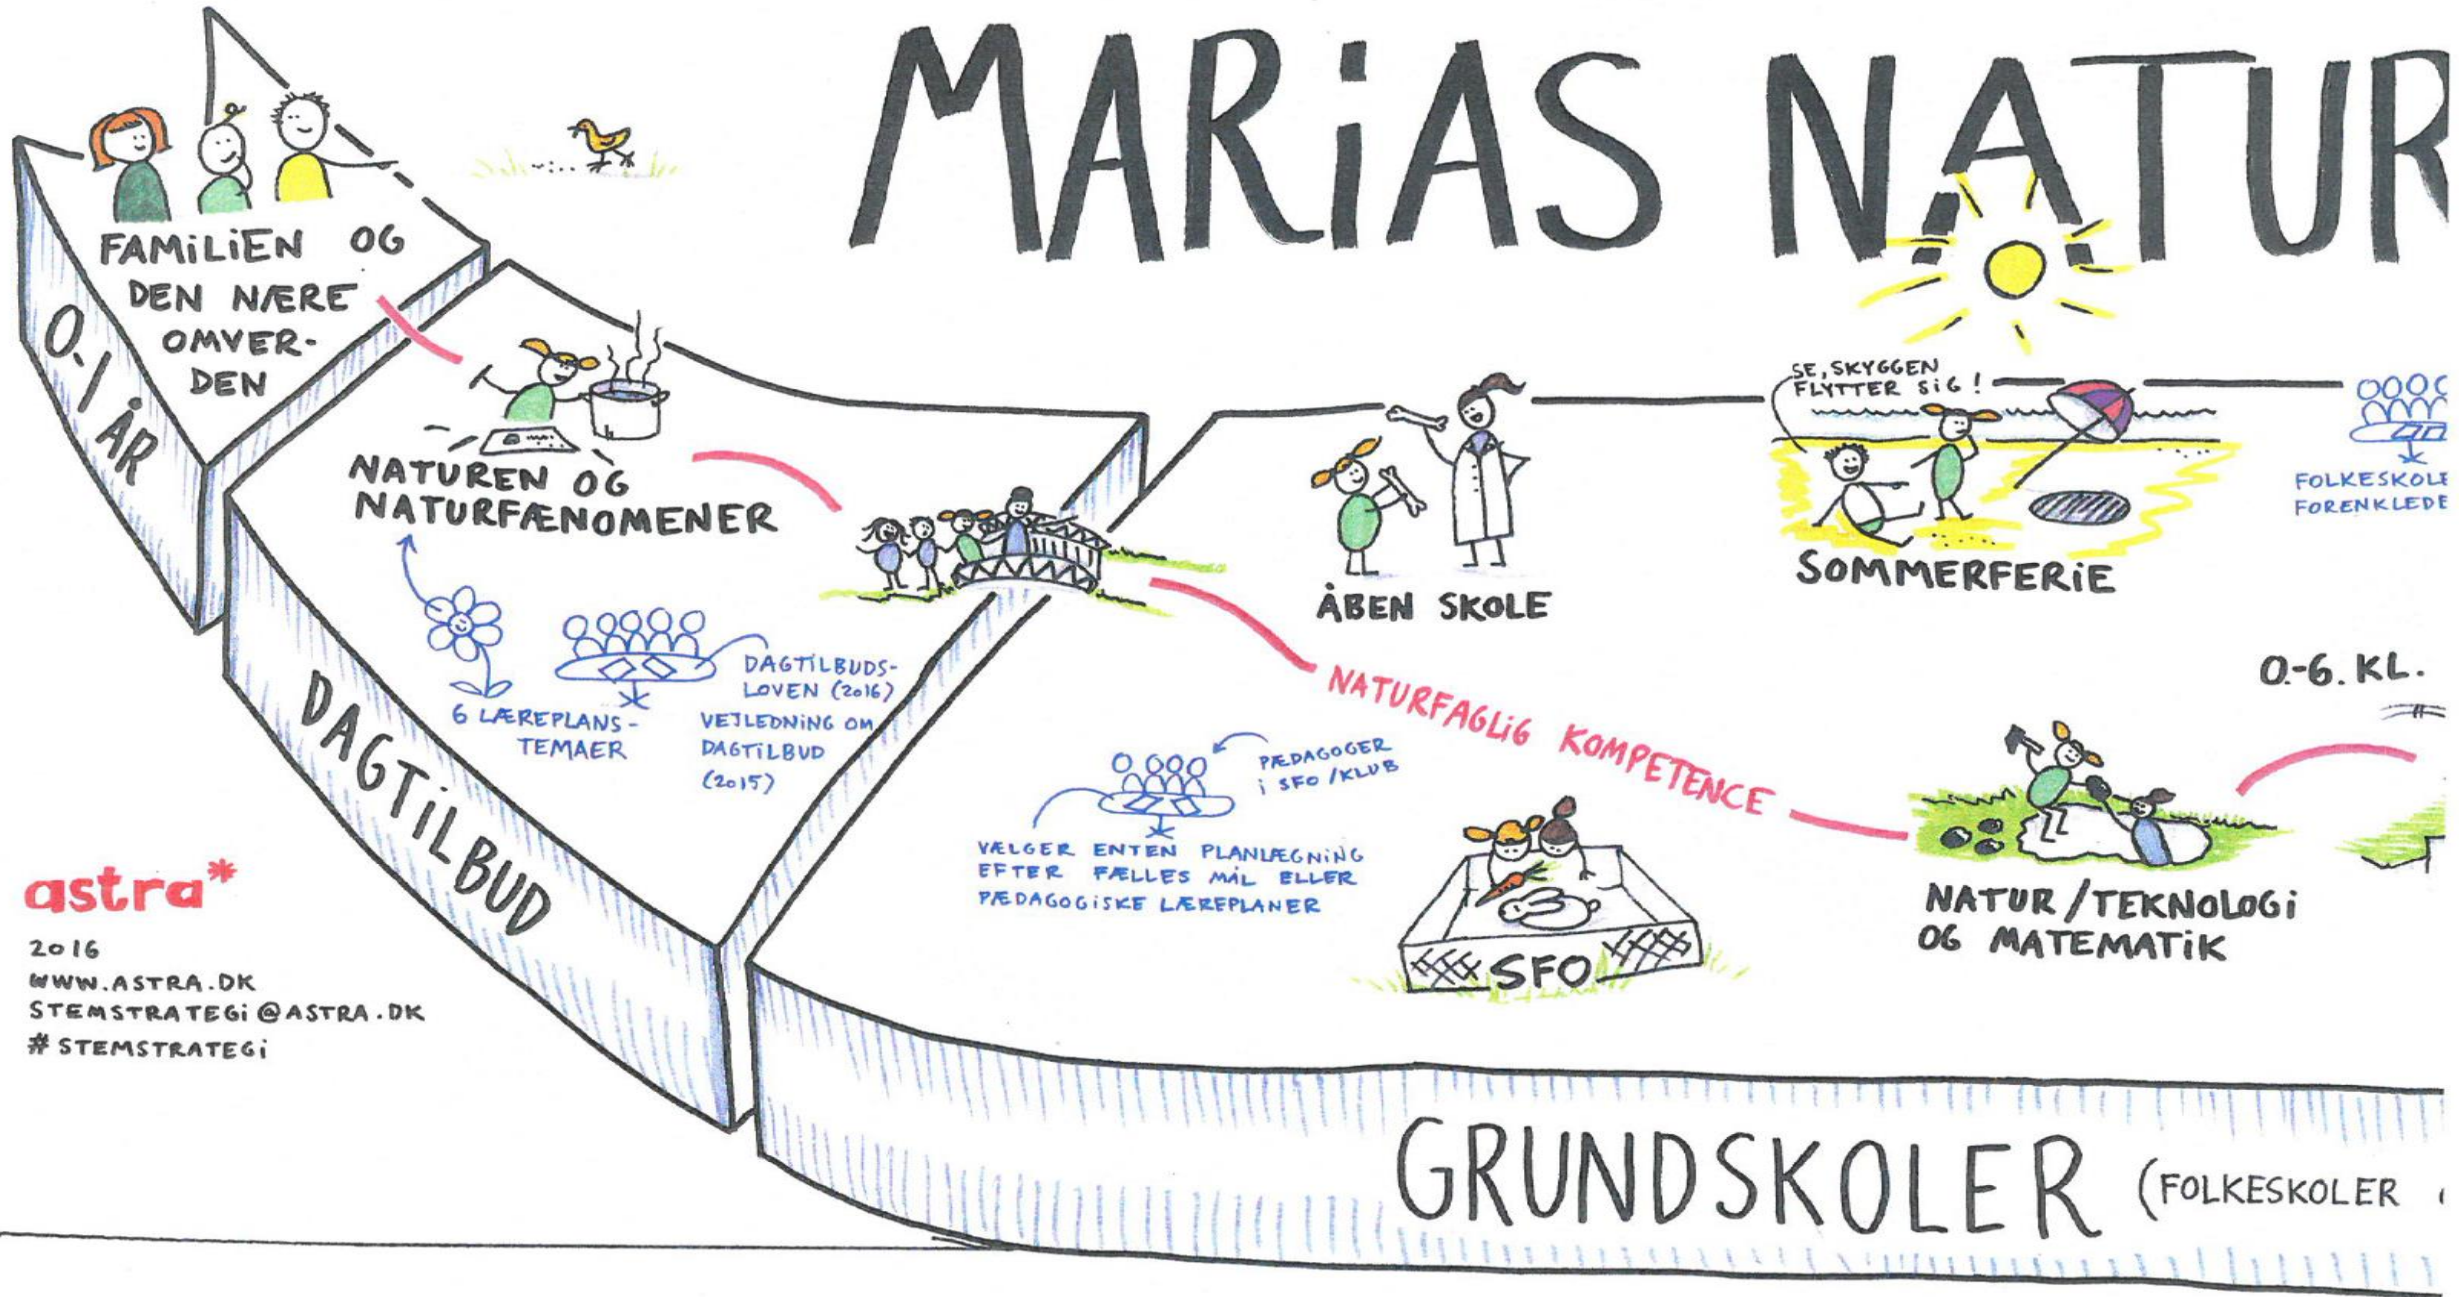 MARiAS NATUR
FAMiLiEN OG
DEN NÆRE
OMVER-
DEN
0-1 ÅR
NATUREN OG
NATURFÆNOMENER
6 LÆREPLANS-
TEMAER
DAGTILBUDS-
LOVEN (2016)
VEJLEDNING OM
DAGTILBUD
(2015)
DAGTiLBUD
ÅBEN SKOLE
SE, SKYGGEN
FLYTTER SiG!
SOMMERFERiE
FOLKESKOLE
FORENKLEDE
NATURFAGLiG KOMPETENCE
0.-6. KL.
PÆDAGOGER
i SFO/KLUB
VÆLGER ENTEN PLANLÆGNiNG
EFTER FÆLLES MÅL ELLER
PÆDAGOGiSKE LÆREPLANER
SFO
NATUR/TEKNOLOGi
OG MATEMATiK
astra*
2016
WWW.ASTRA.DK
STEMSTRATEGi@ASTRA.DK
#STEMSTRATEGi
GRUNDSKOLER (FOLKESKOLER